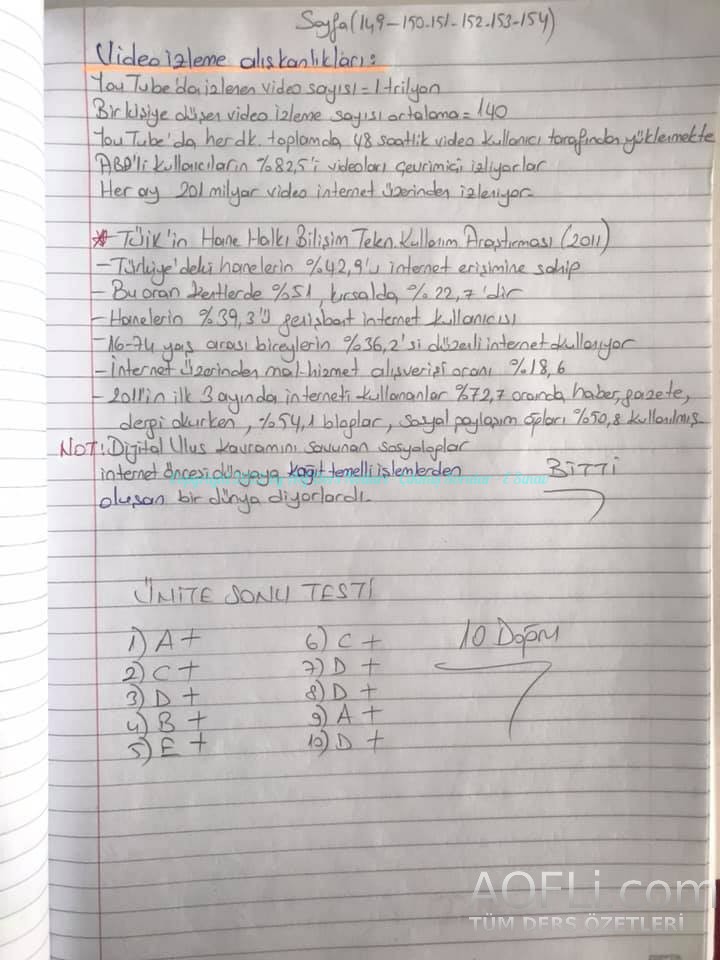 Sayfa (149-150-151-152-153-154)
Video izleme alışkanlıkları:
YouTube'da izlenen video sayısı = 1 trilyon
Bir kişiye düşen video izleme sayısı ortalama = 140
YouTube'da her dk. toplamda 48 saatlik video kullanıcı tarafından yüklenmekte
ABD'li kullanıcıların %82,5'i videoları çevrimiçi izliyorlar
Her ay 201 milyar video internet üzerinden izleniyor.
* Tüik'in Hane Halkı Bilişim Tekn. Kullanım Araştırması (2011)
- Türkiye'deki hanelerin %42,9'u internet erişimine sahip
- Bu oran kentlerde %51, kırsalda %22,7'dir
- Hanelerin %39,3'ü genişbant internet kullanıcısı
- 16-74 yaş arası bireylerin %36,2'si düzenli internet kullanıyor
- İnternet üzerinden mal-hizmet alışverişi oranı %18,6
- 2011'in ilk 3 ayında interneti kullananlar %72,7 oranında haber, gazete,
dergi okurken, %54,1 bloglar, sosyal paylaşım ağları %50,8 kullanılmış
NOT: Dijital Ulus kavramını savunan sosyologlar
internet öncesi dünyaya kağıt temelli işlemlerden
oluşan bir dünya diyorlardı.
BİTTİ
ÜNİTE SONU TESTİ
1) A +
2) C +
3) D +
4) B +
5) E +
6) C +
7) D +
8) D +
9) A +
10) D +
10 Doğru
AOFLi.com
TÜM DERS ÖZETLERİ